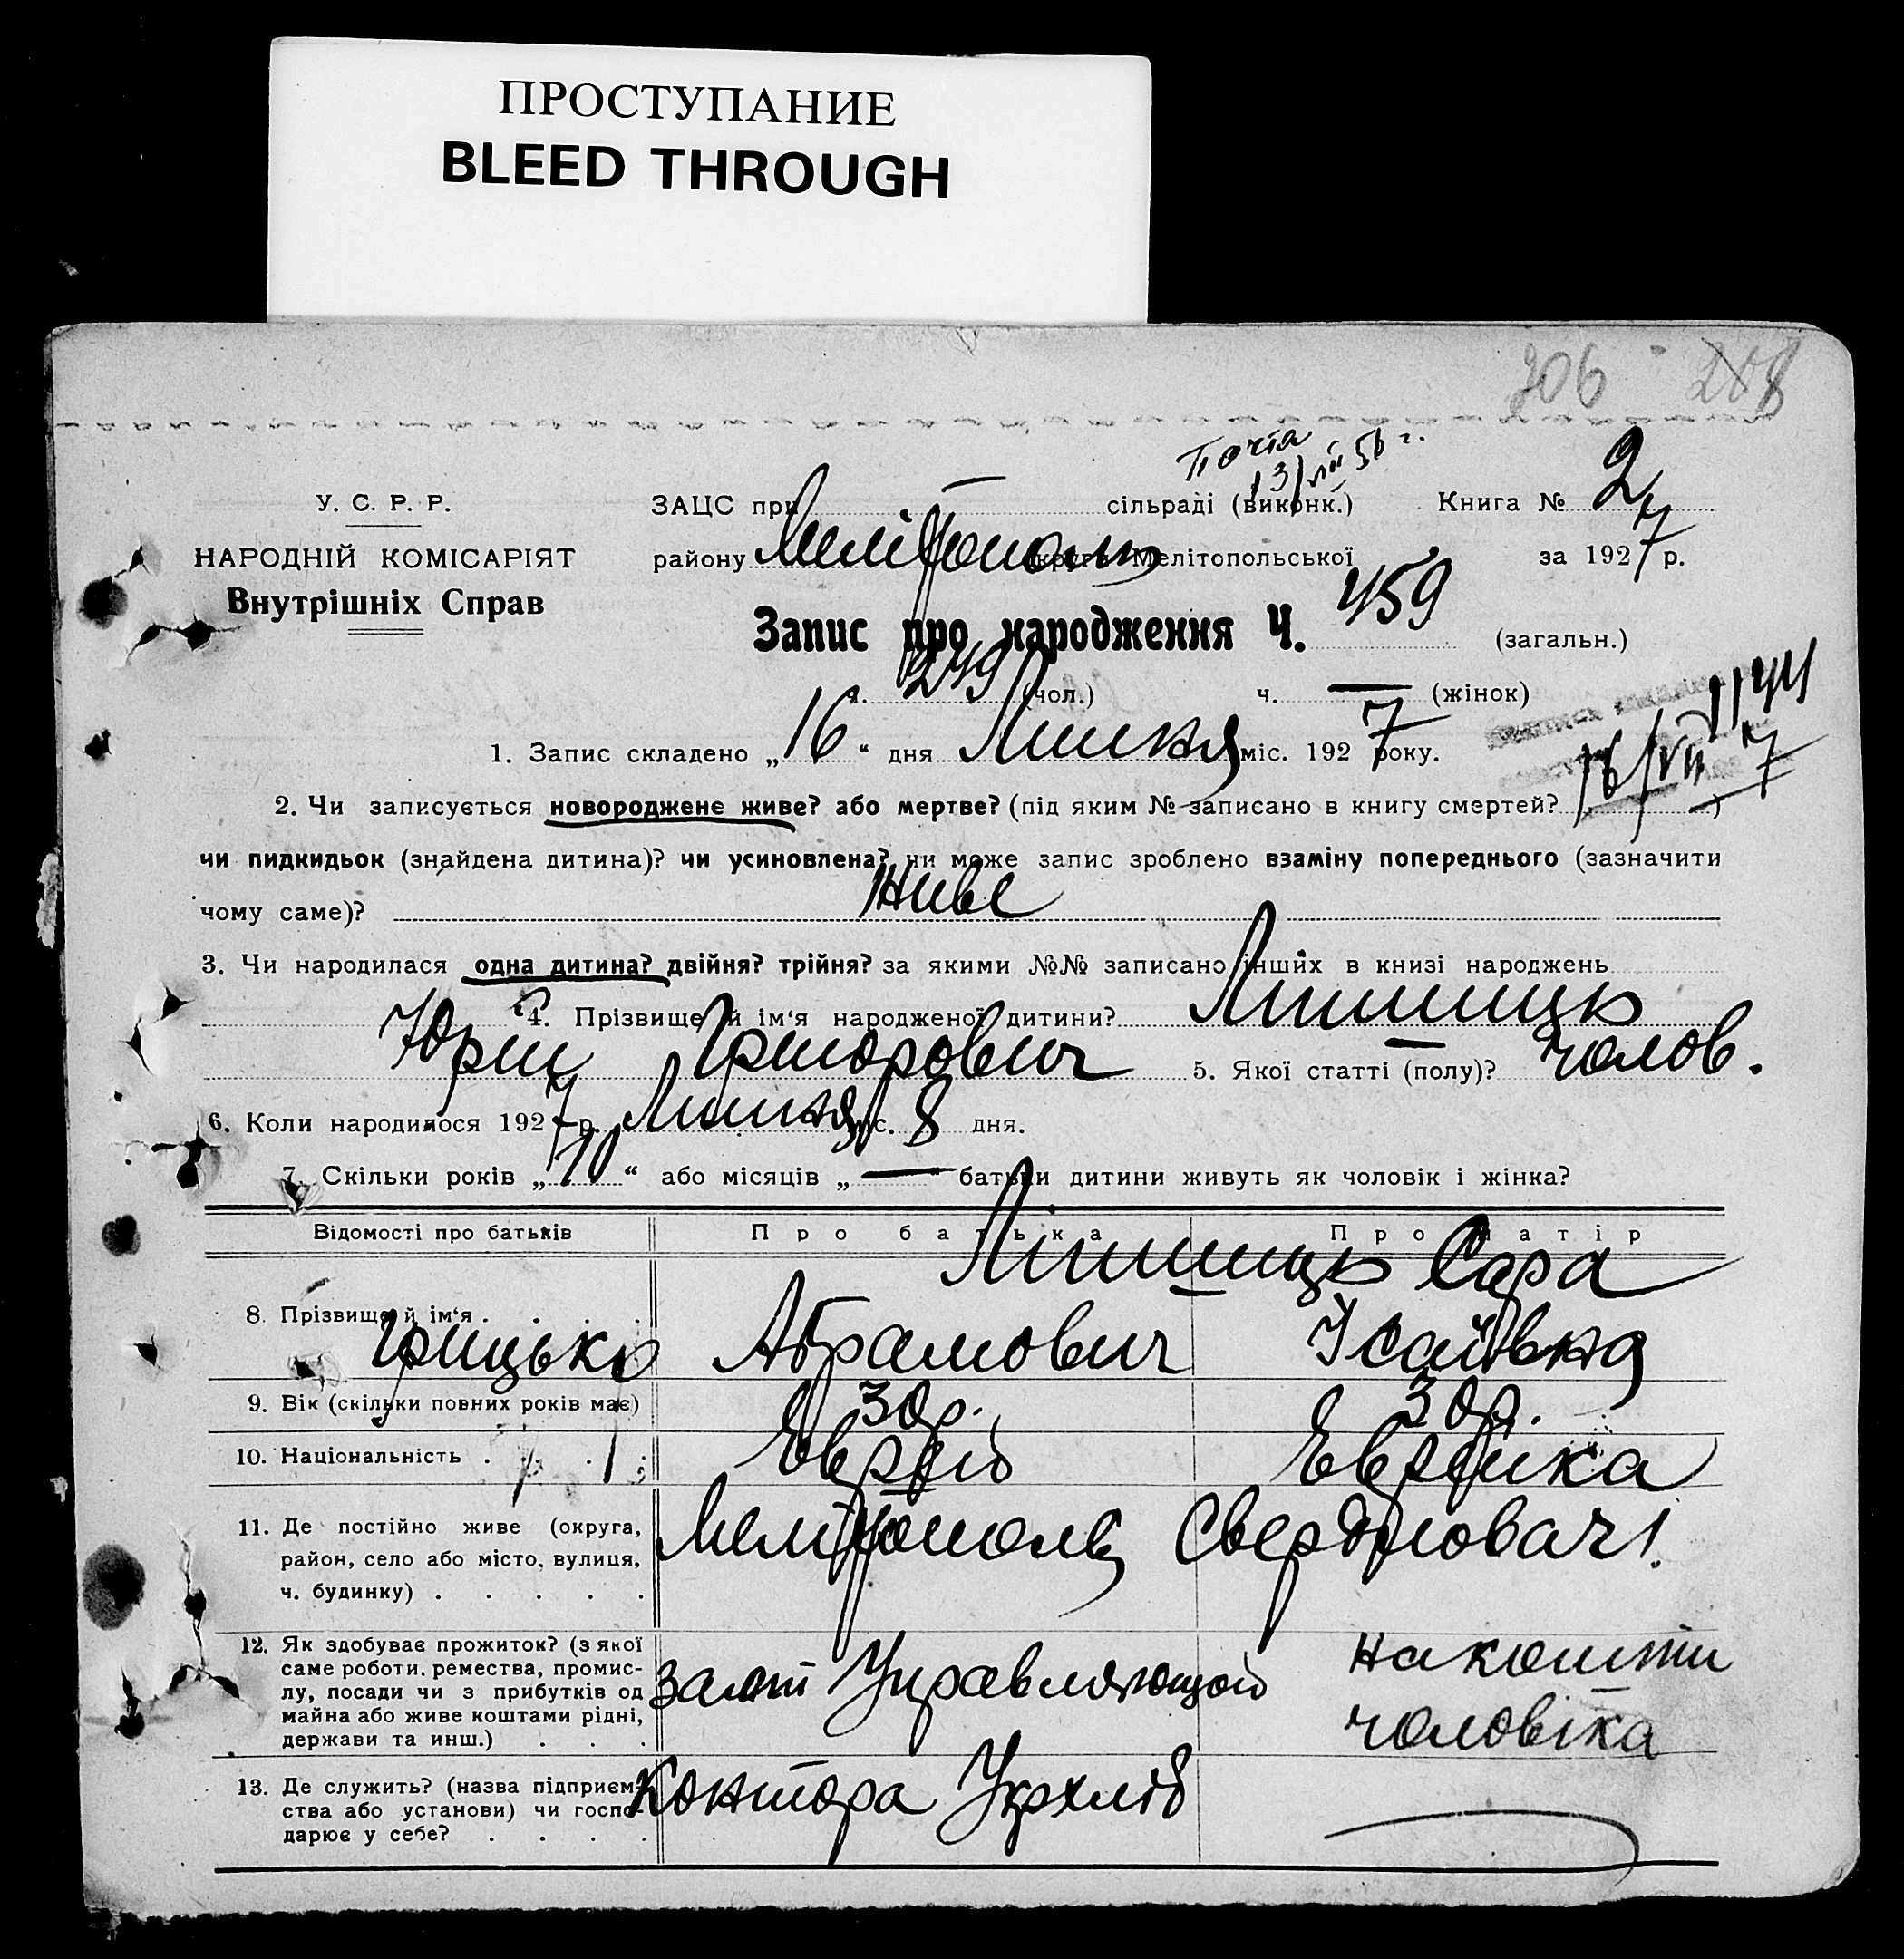 ПРОСТУПАНИЕ
BLEED THROUGH
206 208
Почта
13/VII 56 г.
У. С. Р. Р.
ЗАЦС при сільраді (виконк.) Книга № 2
НАРОДНІЙ КОМІСАРІЯТ
Внутрішніх Справ
району Мелітополь округи Мелітопольської за 1927 р.
Запис про народження Ч. 459 (загальн.)
ч. 249 (чол.) ч. — (жінок)
1. Запис складено „16“ дня Липня міс. 1927 року.
16/VII 7
2. Чи записується новороджене живе? або мертве? (під яким № записано в книгу смертей? )
чи пидкидьок (знайдена дитина)? чи усиновлена? чи може запис зроблено взаміну попереднього (зазначити
чому саме)? Живе
3. Чи народилася одна дитина? двійня? трійня? за якими №№ записано інших в книзі народжень
4. Прізвище й ім‘я народженої дитини? Ліпшиць
Юрій Григорович 5. Якої статті (полу)? Чолов.
6. Коли народилося 1927 р. Липня міс. 8 дня.
7. Скільки років „10“ або місяців „—“ батьки дитини живуть як чоловік і жінка?
Відомості про батьків Про батька Про матір
Ліпшиць Сара
8. Прізвище й ім‘я . . . .
Грицько Абрамович Ісаївна
9. Вік (скільки повних років має) 30 р. 30 р.
10. Національність . . . . Еврей Еврейка
11. Де постійно живе (округа,
район, село або місто, вулиця,
ч. будинку) . . . . .
Мелітополь
12. Як здобуває прожиток? (з якої
саме роботи, ремества, промис-
лу, посади чи з прибутків од
майна або живе коштами рідні,
держави та инш.) . . .
на кошти
чоловіка
13. Де служить? (назва підприєм-
ства або установи) чи госпо-
дарює у себе? . . . .
Контора Укрхліб